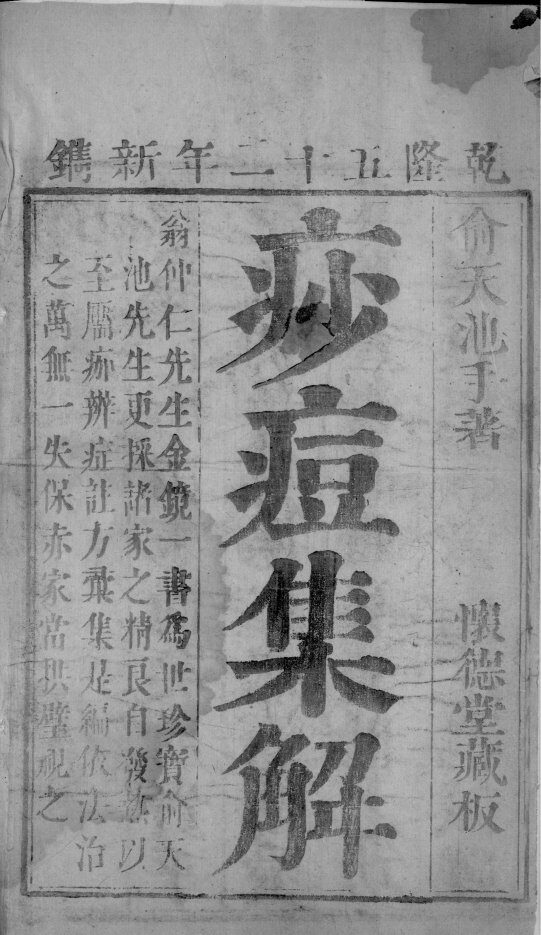 乾隆五十二年新鐫
俞天池手著
懷德堂藏板
痧痘集解
翁仲仁先生金鏡一書爲世珍寶俞天
池先生更採諸家之精良自發熱以
至靨痂辨症註方彙集是編依法治
之萬無一失保赤家當拱璧視之